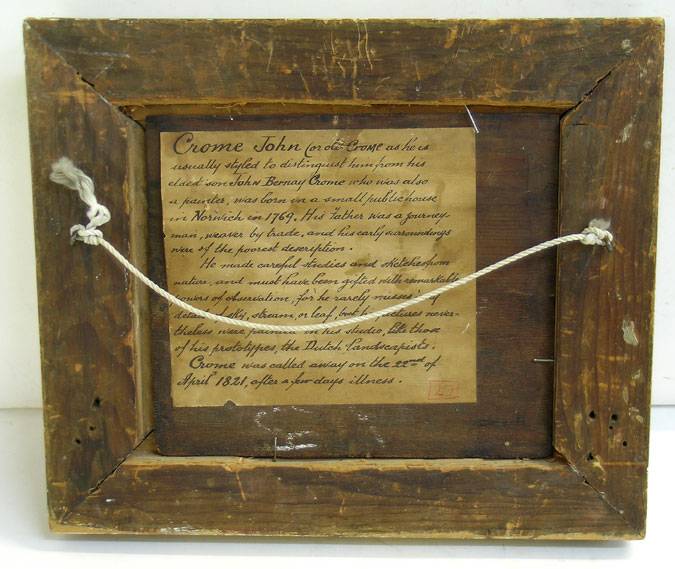 Crome John (or old Crome as he is
usually styled to distinguish him from his
eldest son John Bernay Crome who was also
a painter, was born in a small public house
in Norwich in 1769. His Father was a journey-
man, weaver by trade, and his early surroundings
were of the poorest description.
He made careful studies and sketches from
nature, and must have been gifted with remarkable
powers of observation, for he rarely misses
detail sky, stream, or leaf, but pictures never-
theless were painted in his studio, like those
of his prototypes, the Dutch Landscapists.
Crome was called away on the 22nd of
April 1821, after a few days illness.